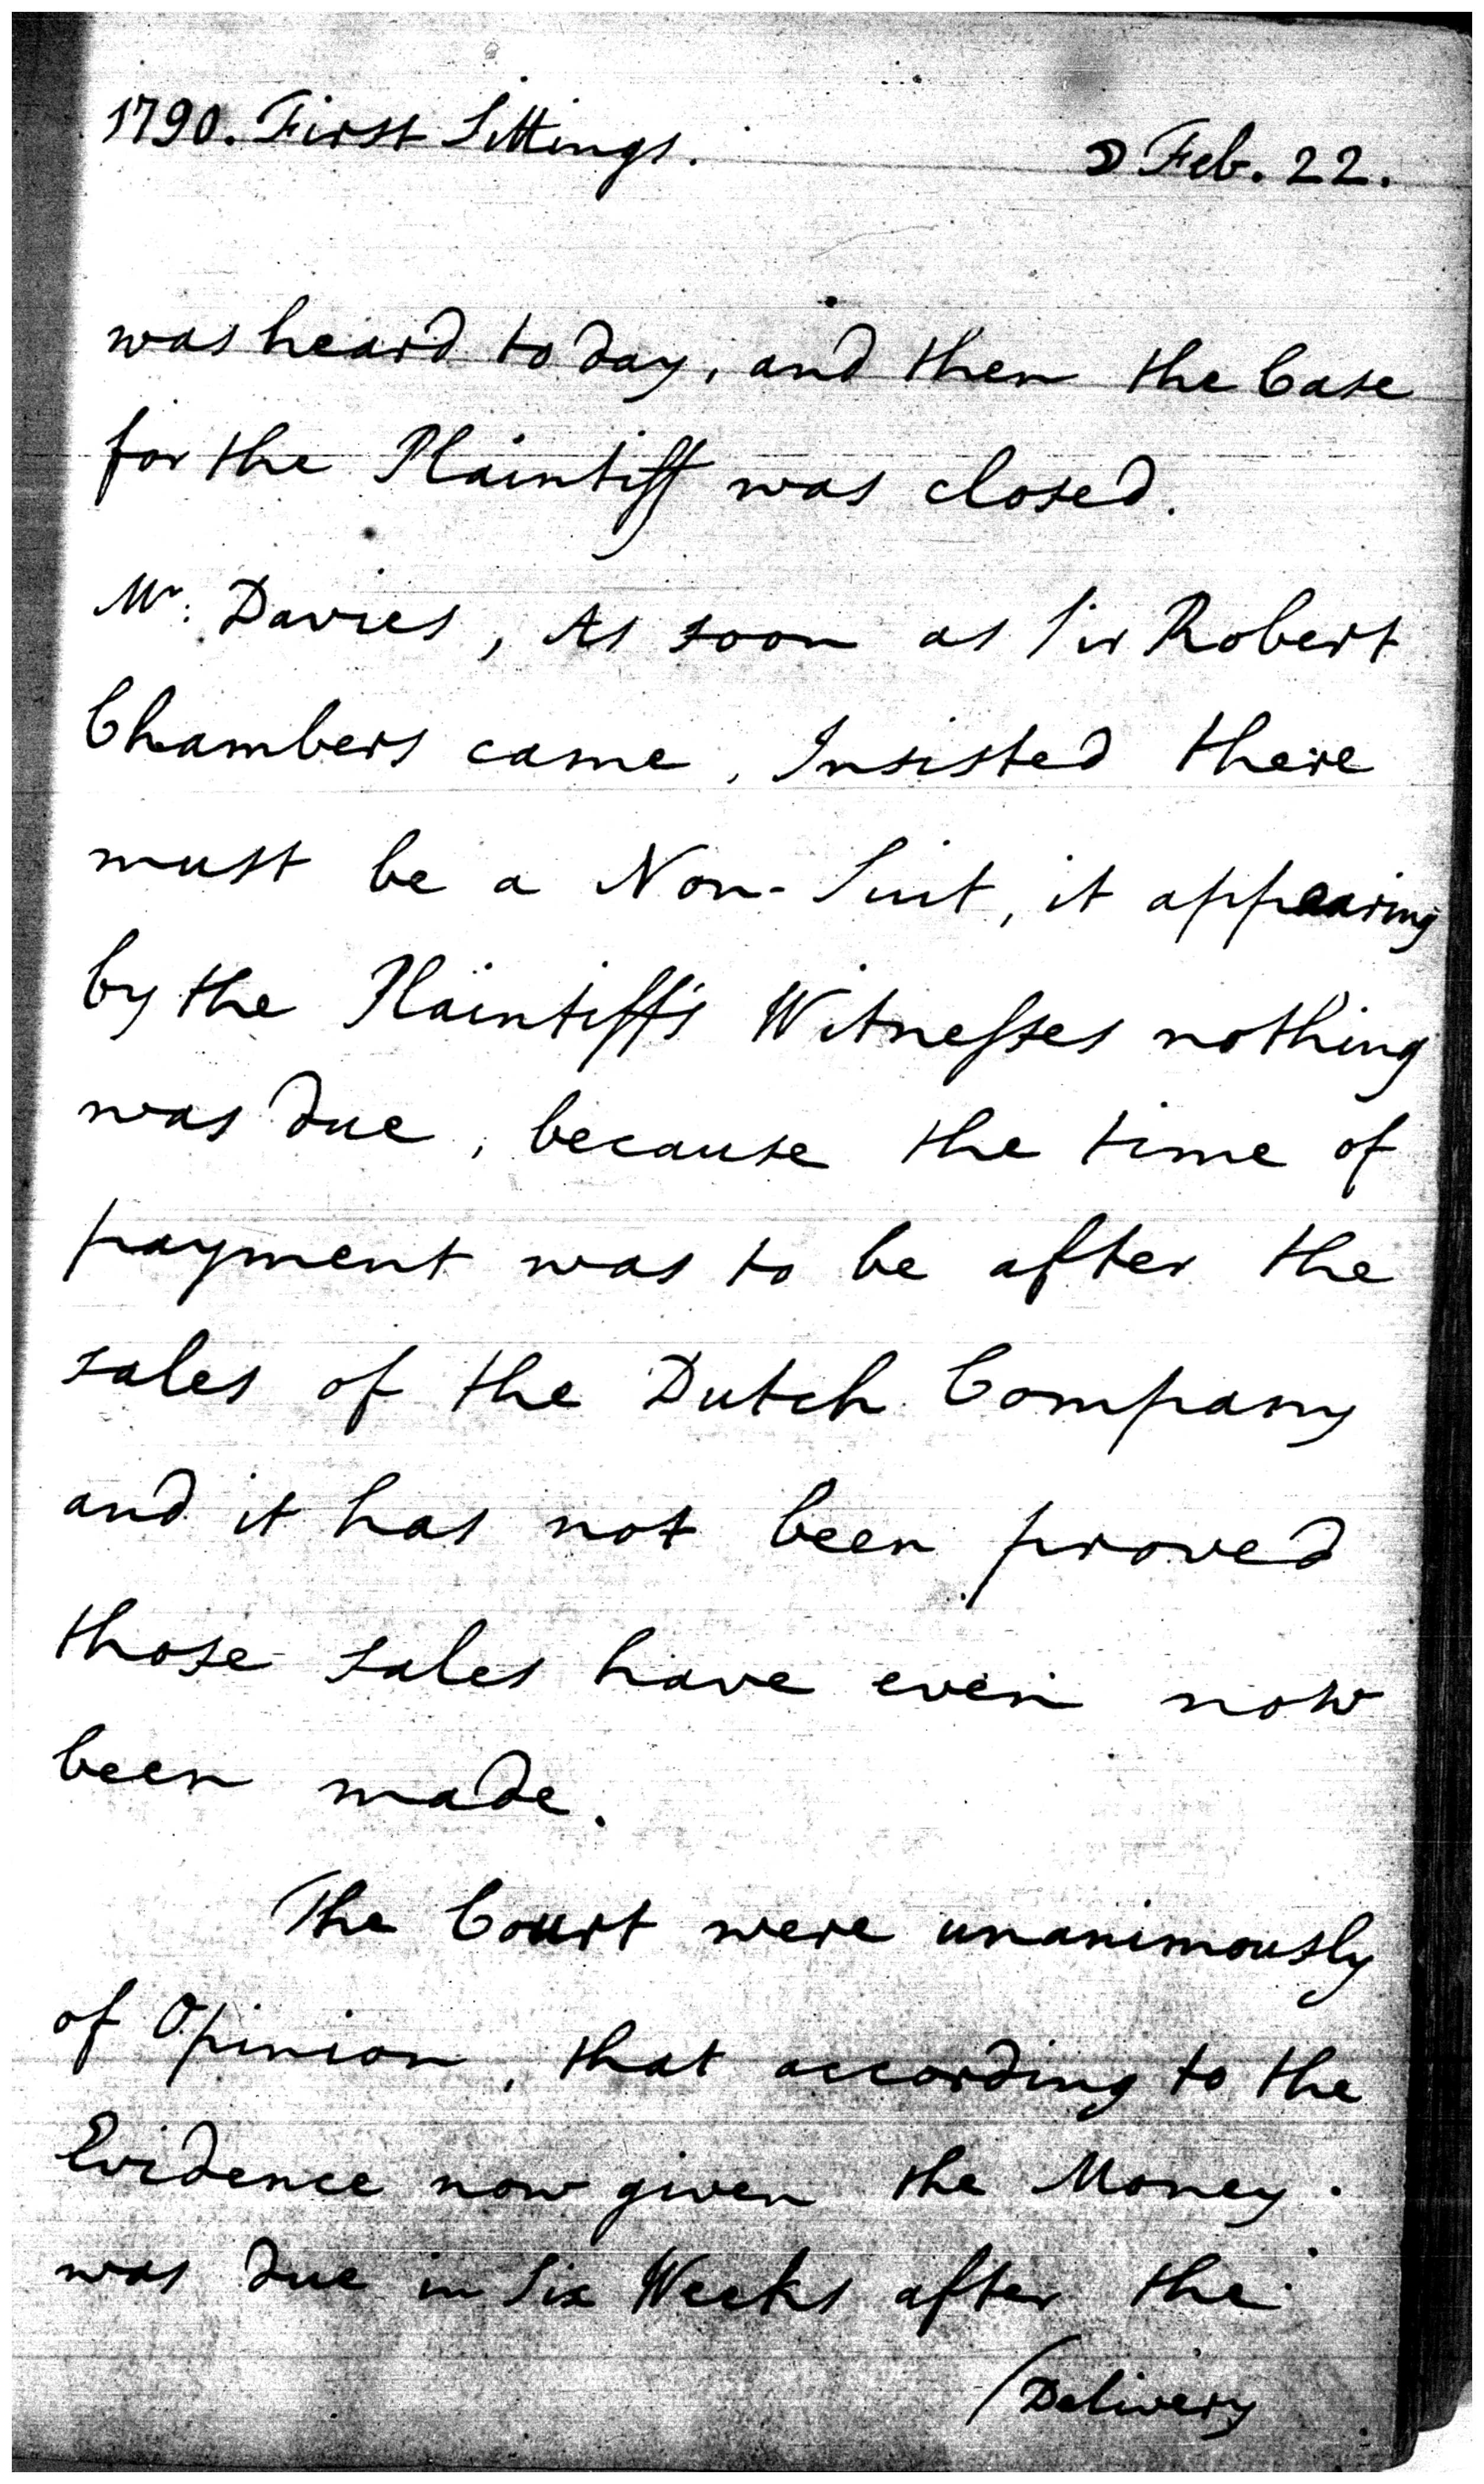 1790. First Sittings.
☽ Feb. 22.
was heard to day, and then the Case
for the Plaintiff was closed.
Mr. Davies, As soon as Sir Robert
Chambers came, Insisted there
must be a Non-Suit, it appearing
by the Plaintiff's Witneſses nothing
was due, because the time of
payment was to be after the
sales of the Dutch Company
and it has not been proved
those sales have even now
been made.
The Court were unanimously
of Opinion, that according to the
Evidence now given the Money
was due in Six Weeks after the
/Delivery